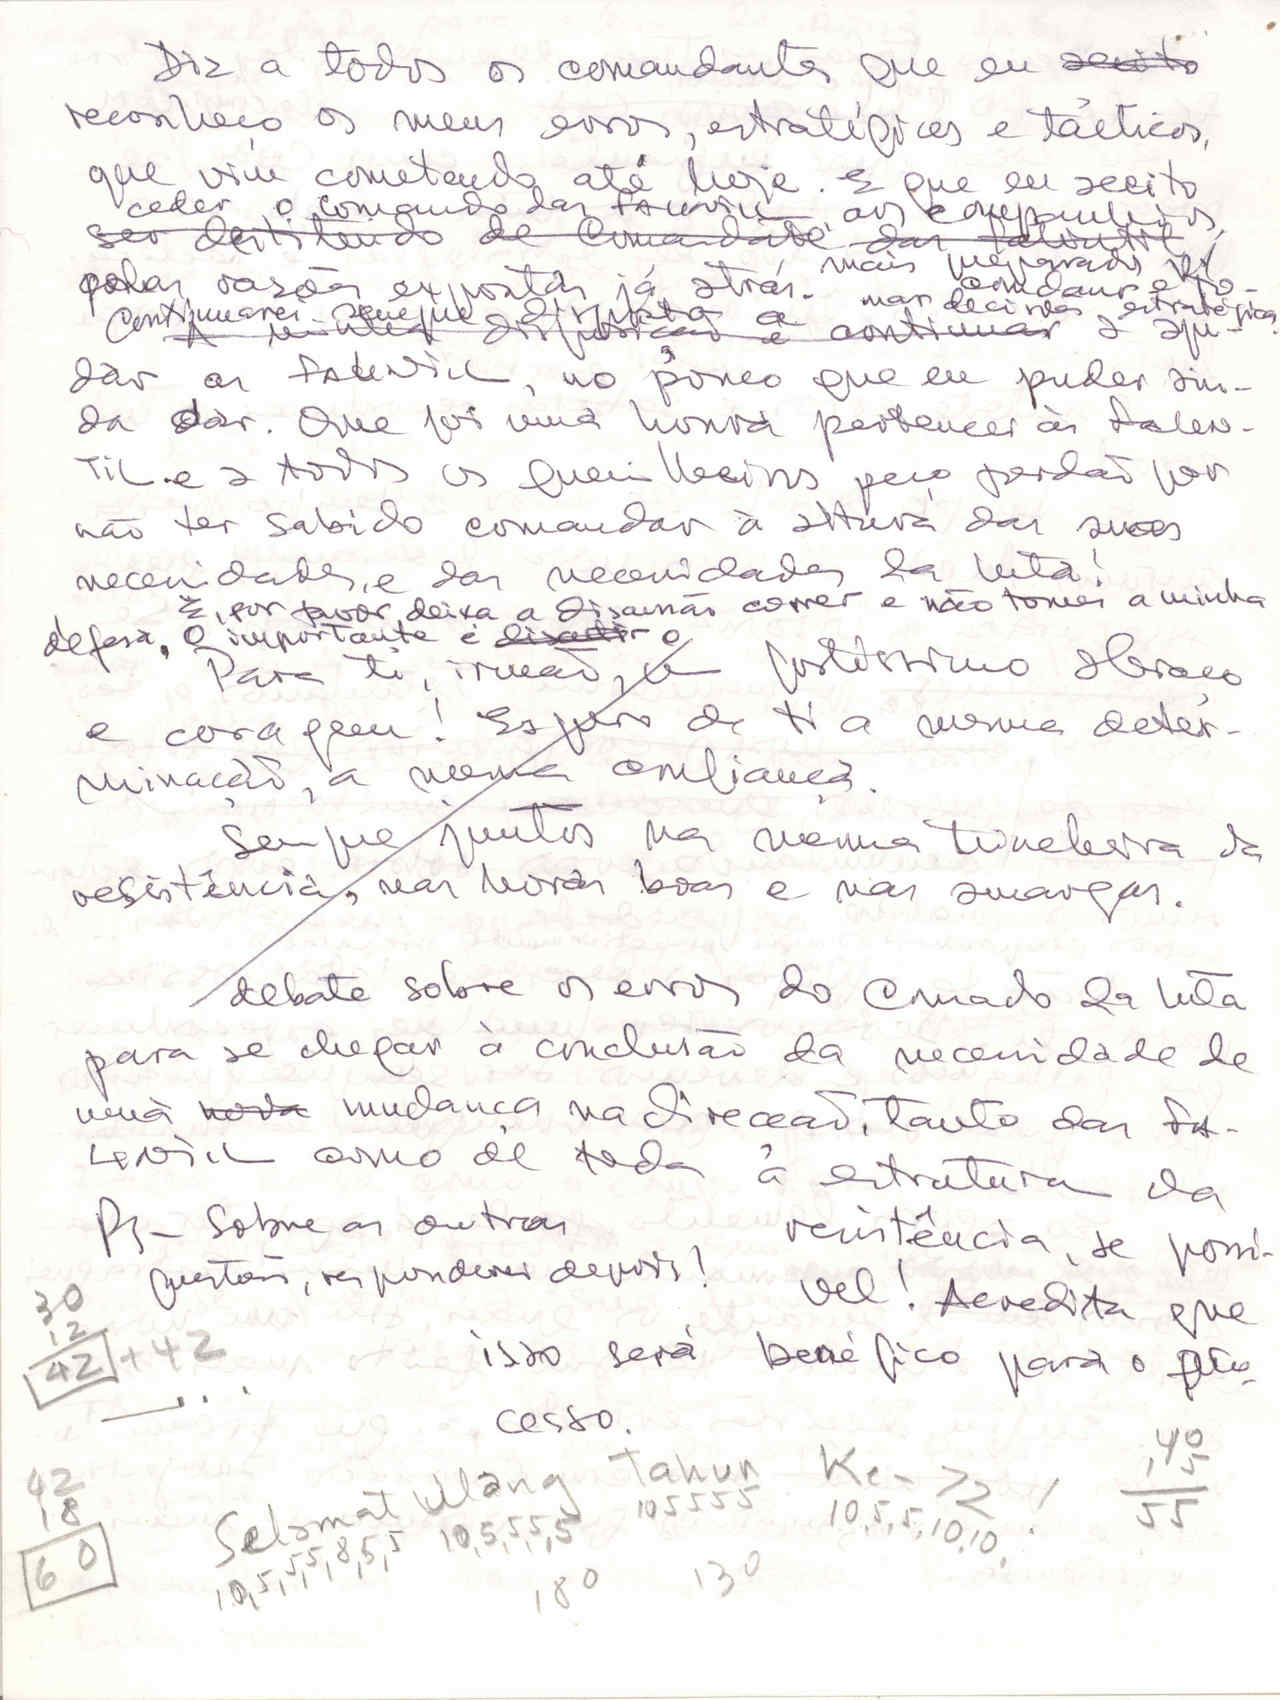 Diz a todos os comandantes que eu aceito
reconheço os meus erros, estratégicos e tácticos,
que vim cometendo até hoje. E que eu aceito
ceder o comando das FALINTIL aos companheiros,
ser destituido de Comandante das Falintil
mais preparados p/
pelas razões expostas já atrás. comdanr e to-
Continuarei sempre disposto a mar decisões estratégicas
A minha disposição é continuar a aju-
dar as FALINTIL, no pouco que eu puder ain-
da dar. Que foi uma honra pertencer às Falin-
til e a todos os guerrilheiros peço perdão por
não ter sabido comandar à altura das suas
necessidades, e das necessidades da luta!
E, por favor deixa a discussão correr e não tomes a minha
defesa. O importante é o
Para ti, irmão, o fortíssimo abraço
e coragem! Espero de ti a mesma deter-
minação, a mesma confiança.
Sempre juntos na mesma trincheira da
resistência, nas horas boas e nas amargas.
debate sobre os erros do Comado da luta
para se chegar à conclusão da necessidade de
uma nova mudança na direcção, tanto das FA-
LINTIL como de toda a estrutura da
resistência, se possí-
vel! Acredita que
isso será benéfico para o pro-
cesso.
Ps - Sobre as outras
questões, responderei depois!
30
12
42 + 42
42
18
60
Selamat Ulang Tahun Ke-
10,5,5,5,8,5,5 10,5,5,5,5 105555 10,5,5,10,10,
180 130
40
15
55